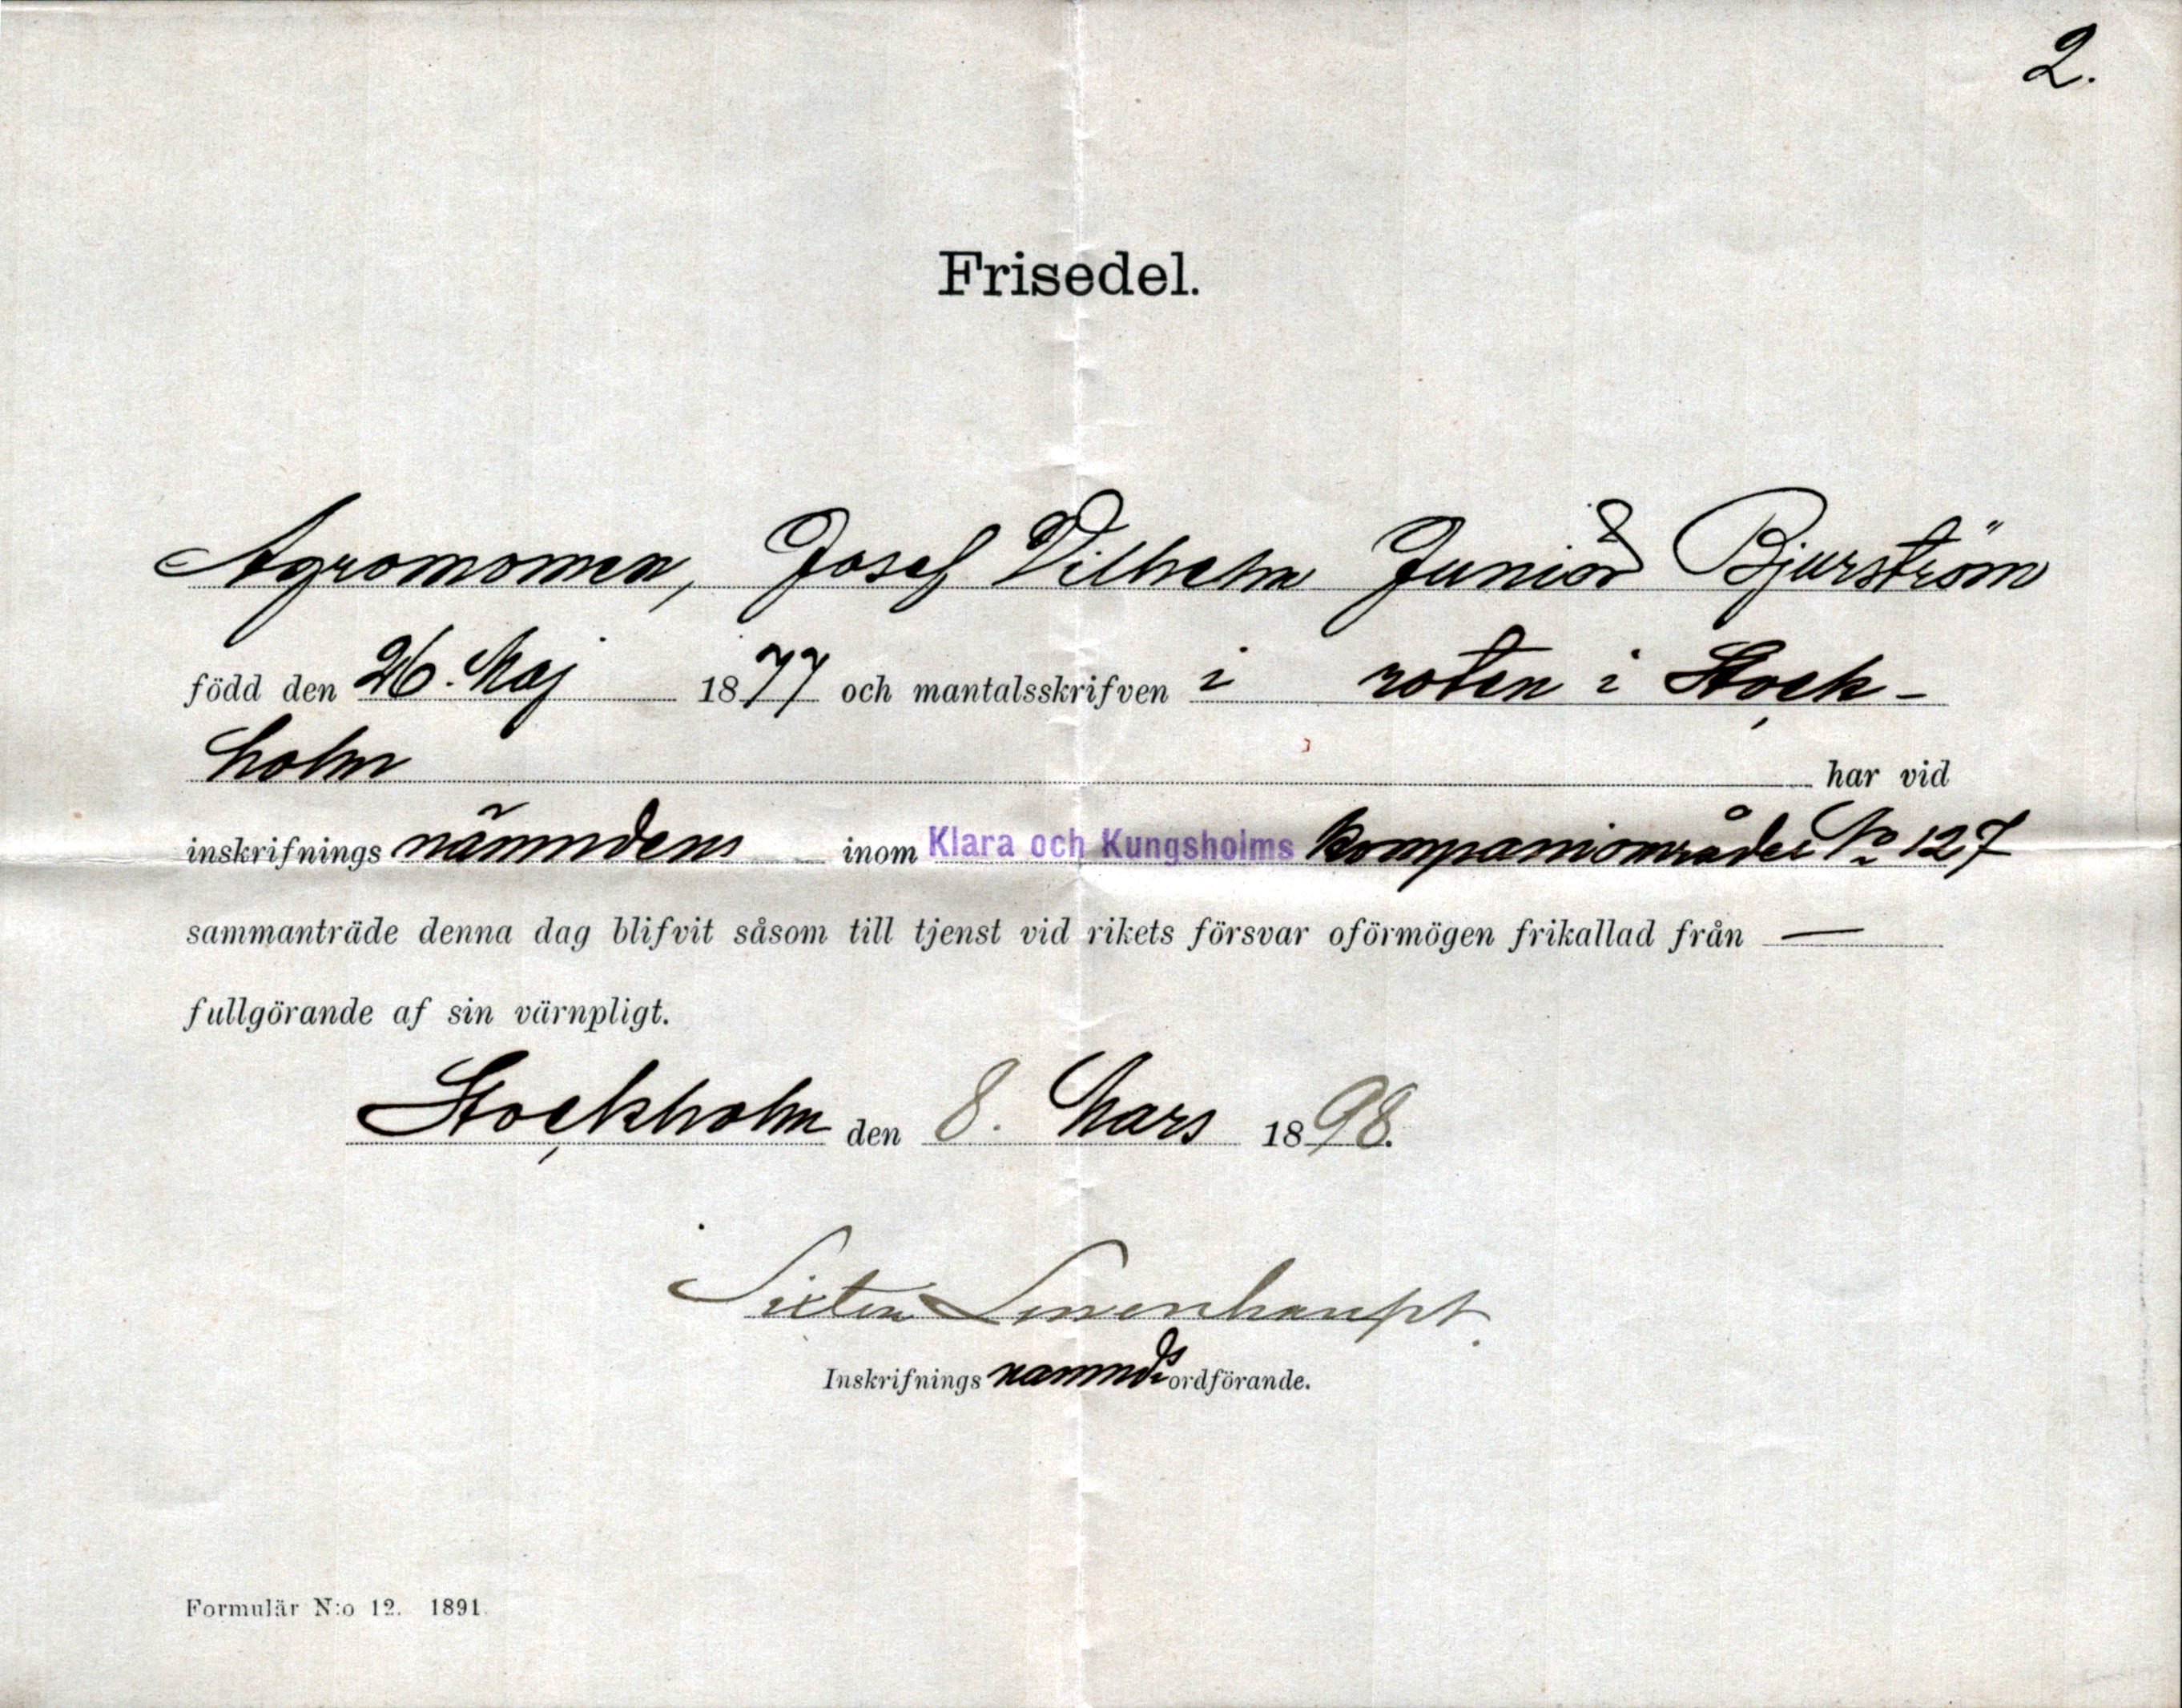 2.
Frisedel.
Agronomen, Josef Vilhelm Junior Bjurström
född den 26. Maj 1877 och mantalsskrifven i roten i Stock-
holm har vid
inskrifnings nämndens inom Klara och Kungsholms Kompaniområde No 127
sammanträde denna dag blifvit såsom till tjenst vid rikets försvar oförmögen frikallad från —
fullgörande af sin värnpligt.
Stockholm den 8. Mars 1898.
Sixten Lewenhaupt.
Inskrifnings nämnds ordförande.
Formulär N:o 12. 1891.